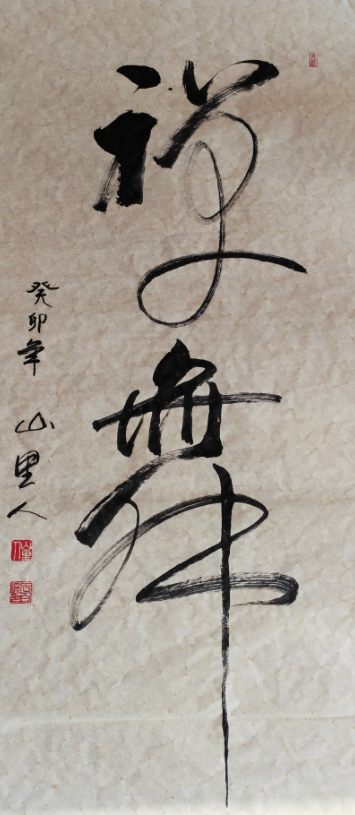 禅舞
癸卯年 山里人